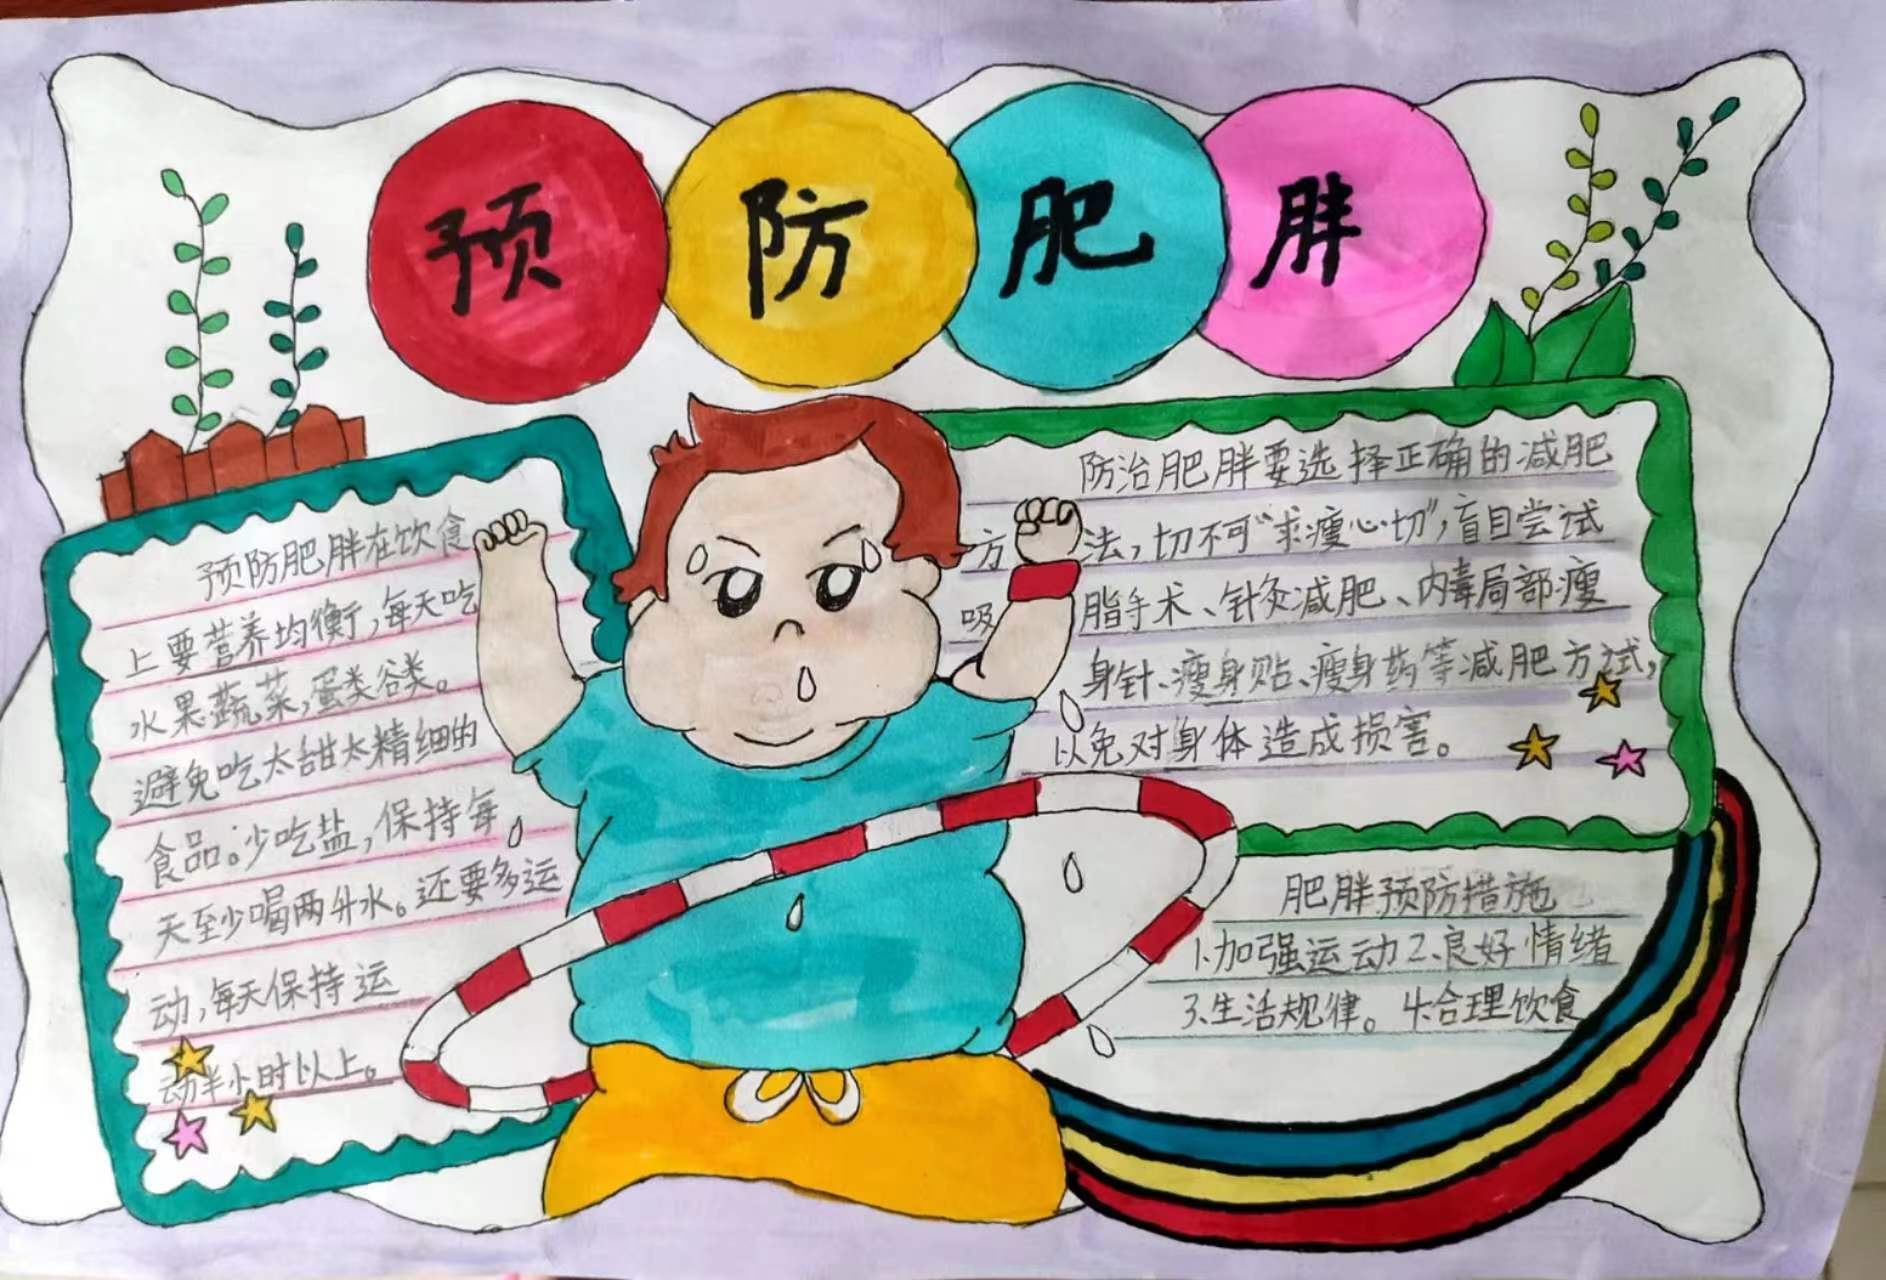 预防肥胖
预防肥胖在饮食
上要营养均衡,每天吃
水果蔬菜,蛋类谷类。
避免吃太甜太精细的
食品。少吃盐,保持每
天至少喝两升水。还要多运
动,每天保持运
动半小时以上。
防治肥胖要选择正确的减肥
方法,切不可“求瘦心切”,盲目尝试
吸脂手术、针灸减肥、内毒局部瘦
身针、瘦身贴、瘦身药等减肥方式,
以免对身体造成损害。
肥胖预防措施
1、加强运动2、良好情绪
3、生活规律。4、合理饮食